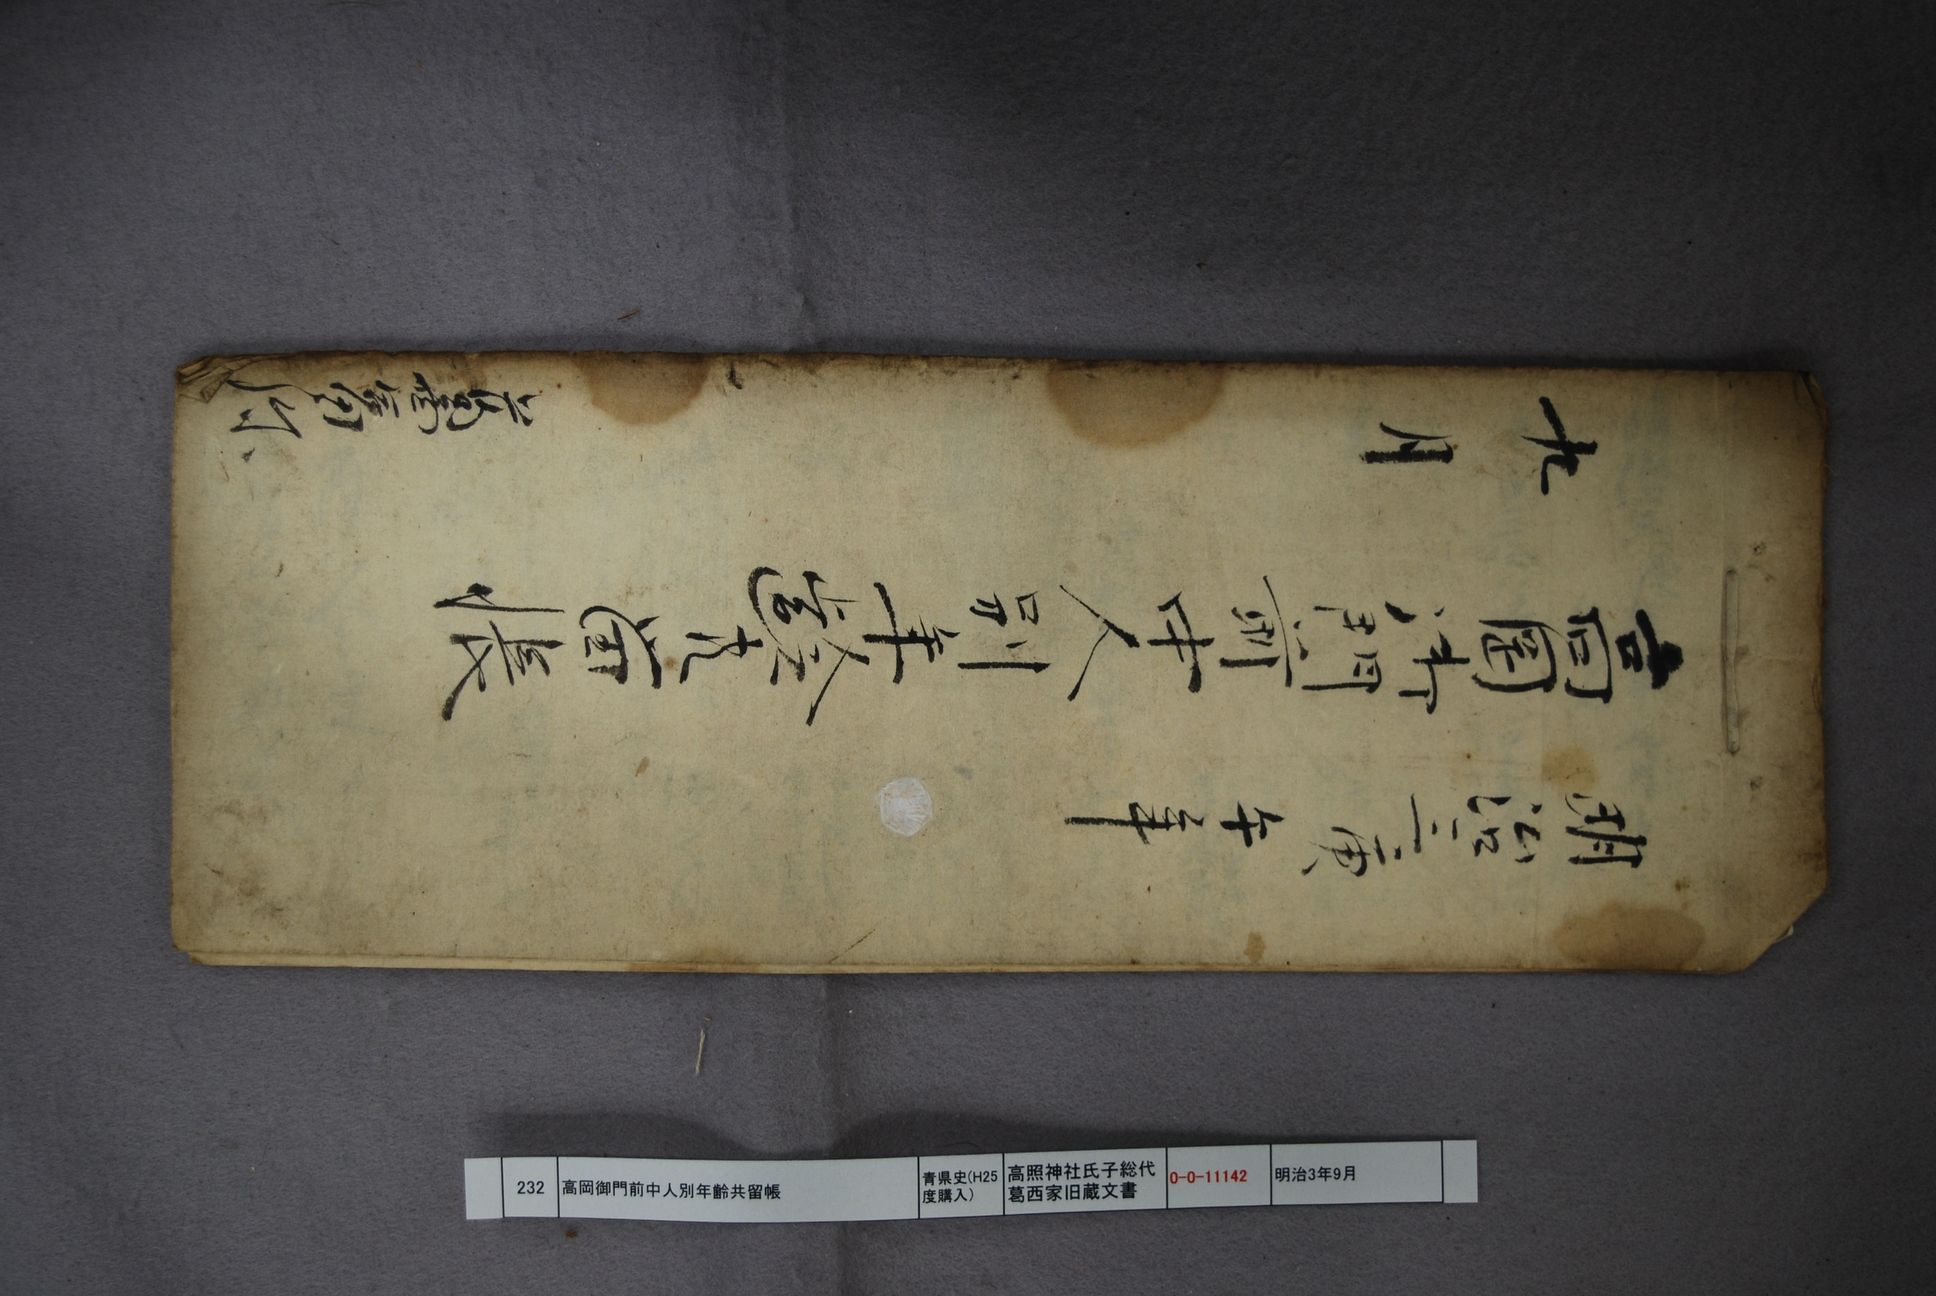 明治三庚午年
高岡御門前中人別年齢共留帳
九月
232
高岡御門前中人別年齢共留帳
青県史(H25
度購入)
高照神社氏子総代
葛西家旧蔵文書
0-0-11142
明治3年9月